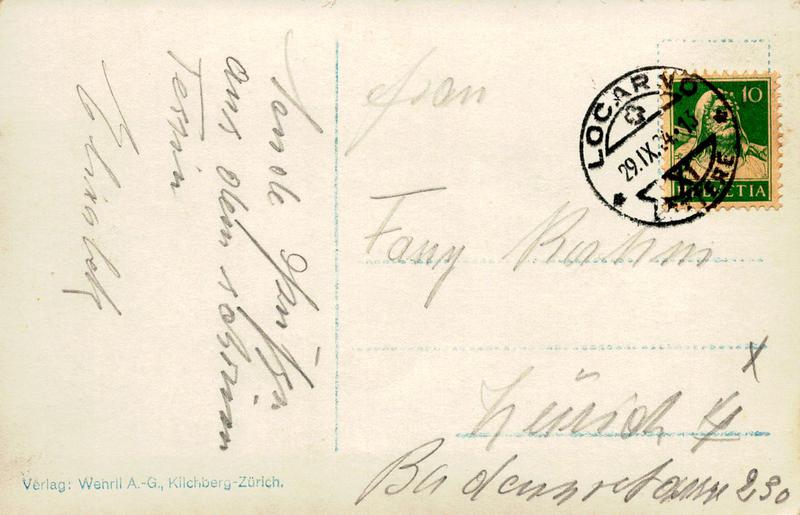 Sende Grüße
aus dem schönen
Tessin
Elisabeth
Frau
Fany Bohm
Zürich 4
Badenerstrasse 230
LOCARNO
29.IX.34.-13
LETTERE
10
HELVETIA
Verlag: Wehrli A.-G., Kilchberg-Zürich.